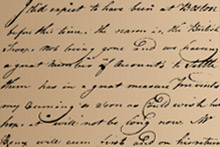 I did expect to have been at Boston
before this time, the reason is, the British
Troops not being gone and we having
a great number of Accounts to settle
them has in a great measure prevented
my Coming as soon as I could wish but
hope it will not be long now. Mr
will come first and on his return